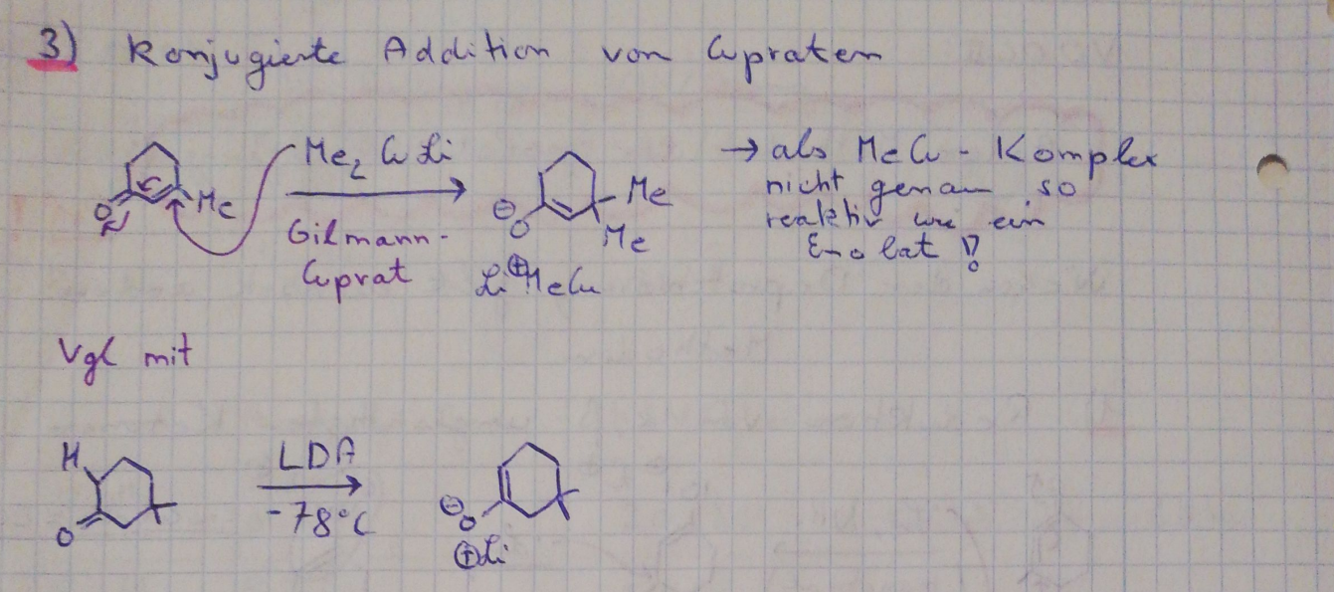 3) Konjugierte Addition von Cupraten
Me₂CuLi
→ als MeCu - Komplex
nicht genau so
reaktiv wie ein
Enolat !?
O
Me
Gilmann-
Cuprat
⊖
O
Me
Me
Li⊕MeCu
Vgl mit
H
O
LDA
-78°C
⊖
O
⊕Li